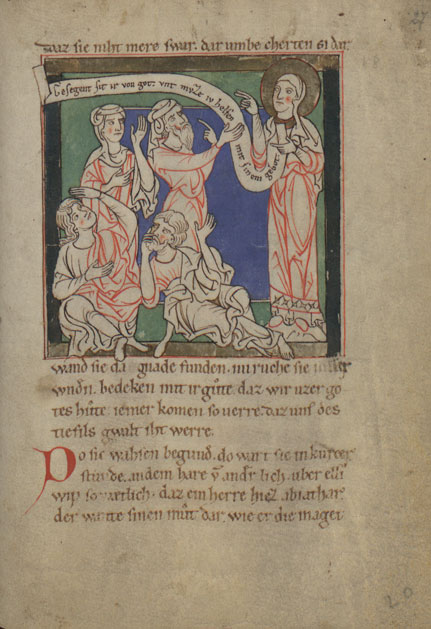 daz sie niht mere swar. dar umbe cherten si dar
Gesegent sit ir von gote vnt mvͦze iv helfen mit sinem gebot
wand sie da gnade funden. nu ruͦche sie
wndn. bedeken mit ir guͦte. daz wir uzer go
tes huͦte. iemer komen so uerre. daz uns des
tiefils gwalt iht werre.
Do sie wahsen begund. do wart sie in kurcer
stunde. an dem hare vn andr lich. uber elliv
wip so wætlich. daz ein herre hiez abiathar.
der wante sinen muͦt dar. wie er die maget
27
20